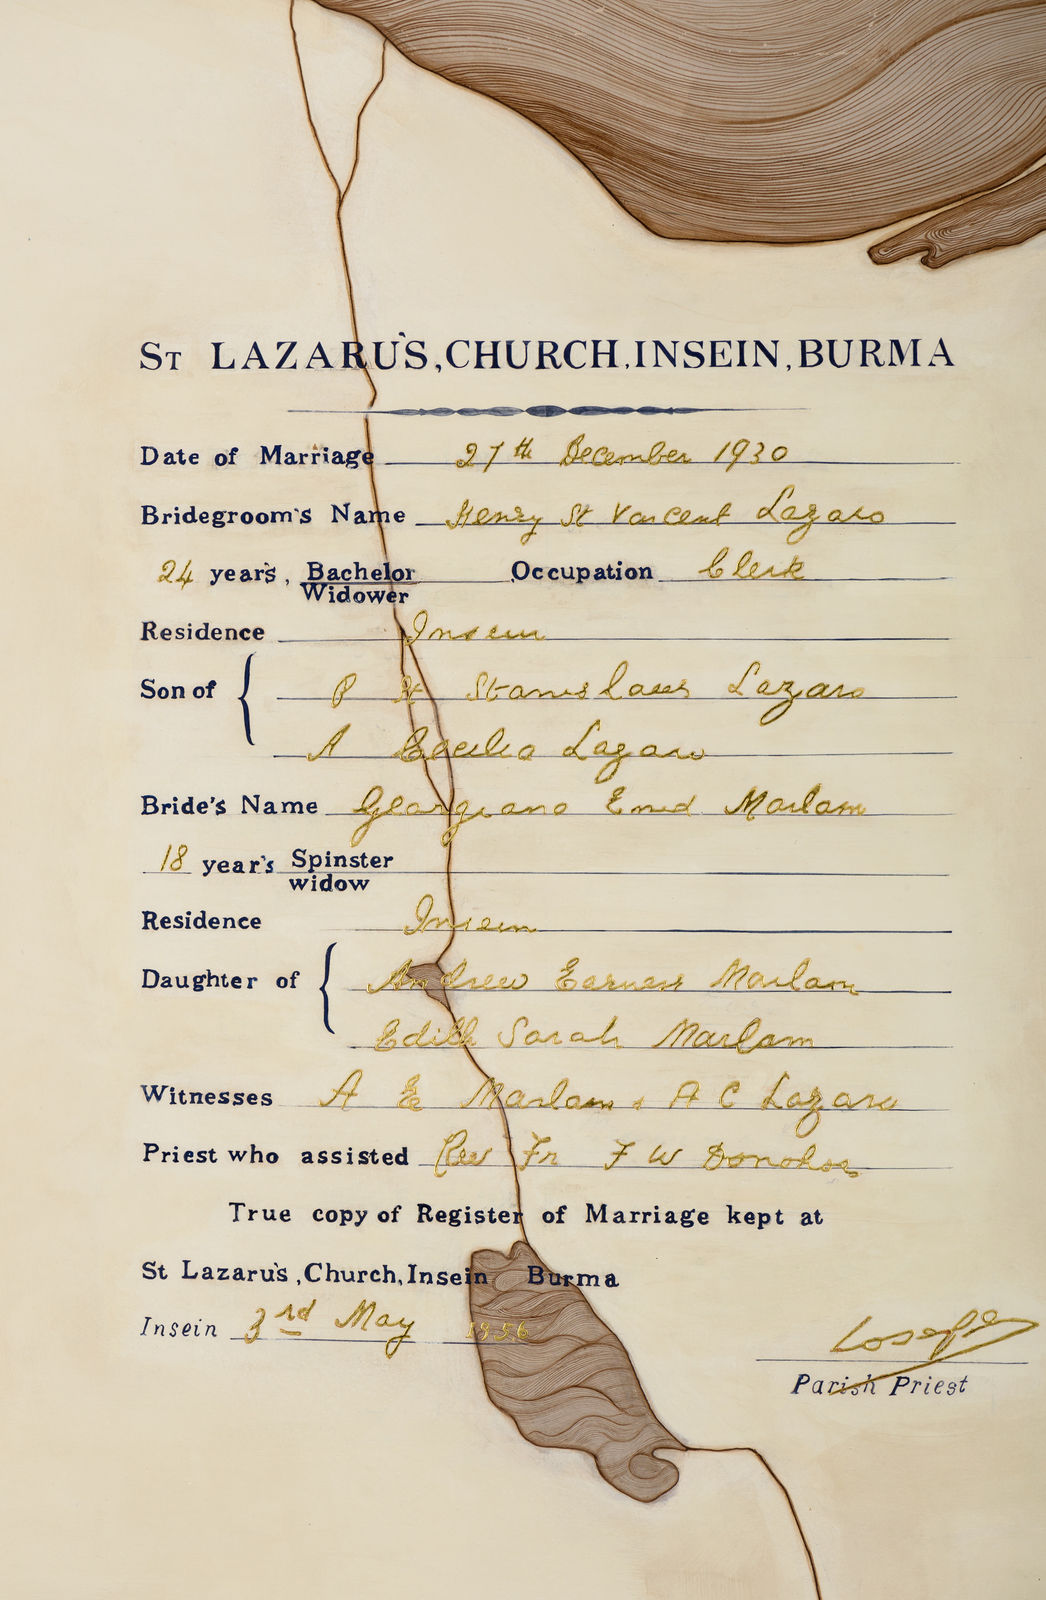 ST LAZARU'S,CHURCH,INSEIN,BURMA
Date of Marriage 27th December 1930
Bridegroom's Name Henry St Vincent Lazaro
24 year's, Bachelor Occupation Clerk
Widower
Residence Insein
Son of { P St Stanislaus Lazaro
A Cecelia Lazaro
Bride's Name Georgiana Enid Marlam
18 year's Spinster
widow
Residence Insein
Daughter of { Andrew Earness Marlam
Edith Sarah Marlam
Witnesses A E Marlam + A C Lazaro
Priest who assisted Rev Fr F W Donohoe
True copy of Register of Marriage kept at
St Lazaru's,Church,Insein Burma
Insein 3rd May 1956
Parish Priest